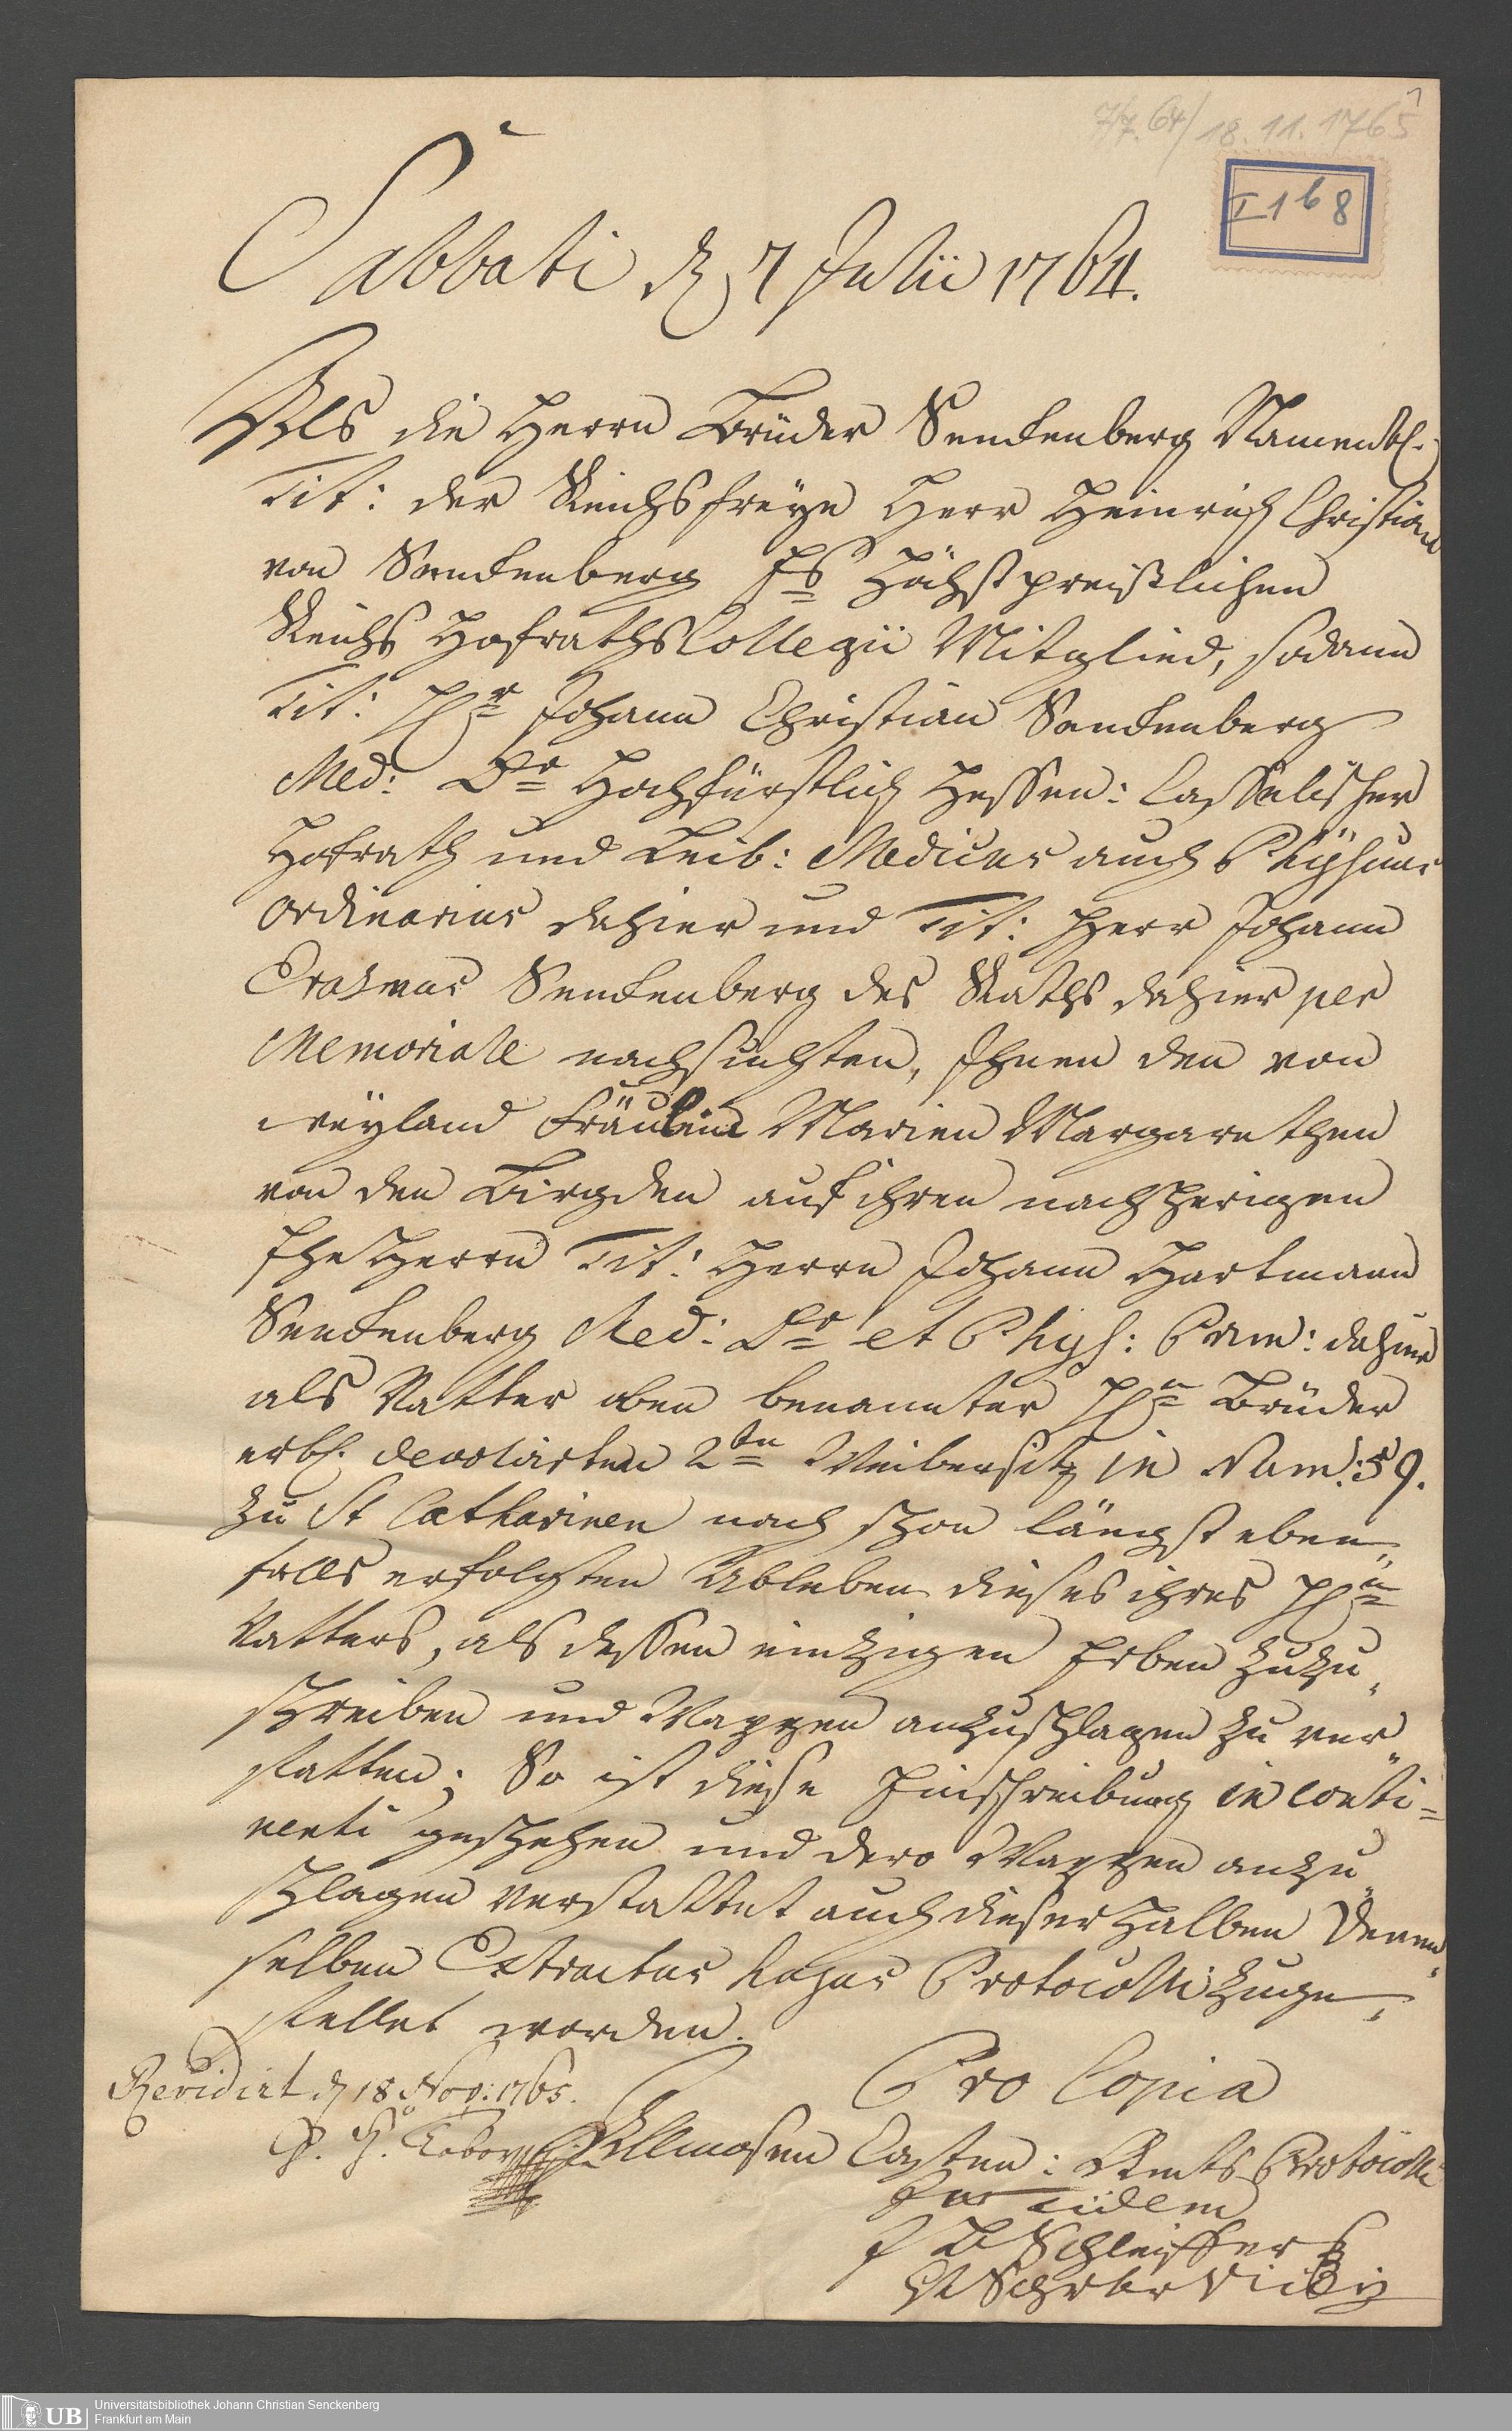 7/7.64/18.11.1765
I 168
Sabbati d 7 Julii 1764.
Als die Herrn Brüder Senckenberg Namentl.
Tit: der Reichsfreye Herr Heinrich Christian
von Senckenberg Höchstpreißlichen
Reichs Hofraths Collegii Mitglied, sodann
Tit: Hr Johann Christian Senckenberg
Med: Dr Hochfürstlich Hessen: Casselischer
Hofrath und Leib: Medicus auch Physicus
ordinarius dahier und Tit: Herr Johann
Erasmus Senckenberg des Raths dahier per
Memoriale nachsuchten, Ihnen den von
weyland Fräulein Marien Margarethen
von den Birgden auf ihren nachherigen
Ehe Herrn Tit: Herrn Johann Hartmann
Senckenberg Med: Dr et Phys: Prim: dahier
als Vatter oben benannter Hn Brüder
erbl. devolvirten 2tn Weibersitz in Num: 59.
zu St Catharinen nach schon längst eben„
falls erfolgten Ableben dieses ihres Hn
Vatters, als dessen eintzigen Erben zuzu„
schreiben und Wappen anzuschlagen zu ver„
statten; So ist diese Einschreibung in conti=
nenti geschehen und dero Wappen anzu„
schlagen verstattet auch dieserhalben Denen„
selben Extractus hujus Protocolli zuge„
stellet worden.
Pro Copia
Revidirt d 18 Nov: 1765.
Allmosen Casten: Amts Protocolli
in fidem
Schleiffer